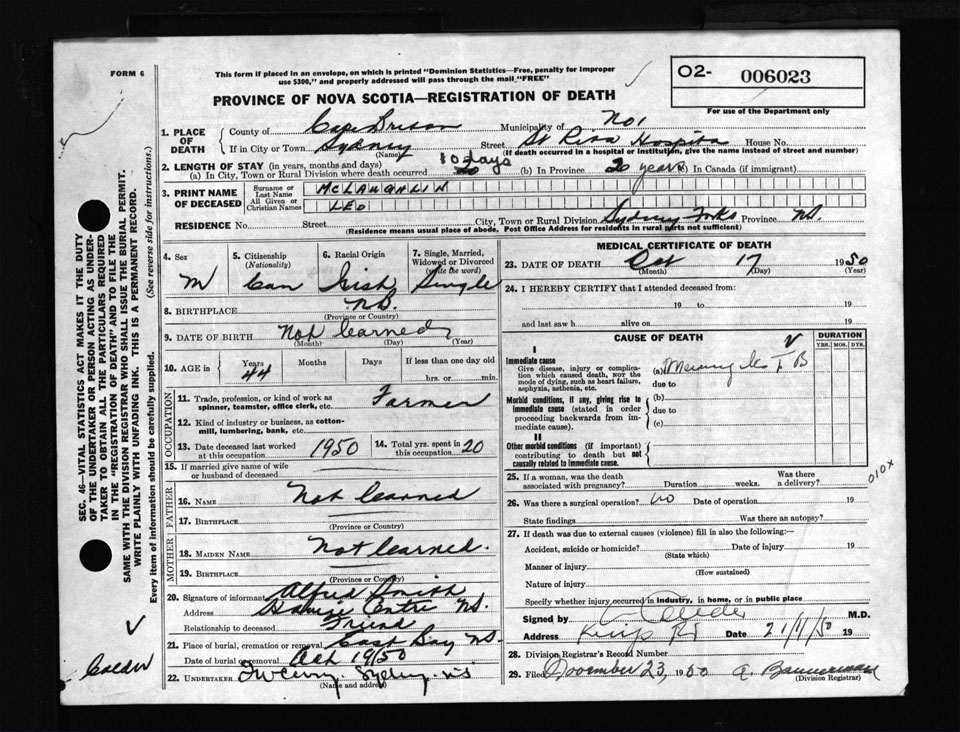 FORM 6
This form if placed in an envelope, on which is printed "Dominion Statistics—Free, penalty for improper
use $300," and properly addressed will pass through the mail "FREE"
O2- 006023
For use of the Department only
PROVINCE OF NOVA SCOTIA—REGISTRATION OF DEATH
1. PLACE OF DEATH
County of Cape Breton Municipality of No 1
If in City or Town Sydney Street St Rita Hospital House No.
(Name) (If death occurred in a hospital or institution, give the name instead of street and number)
2. LENGTH OF STAY (in years, months and days)
(a) In City, Town or Rural Division where death occurred 10 days (b) In Province 20 years (c) In Canada (if immigrant)
3. PRINT NAME OF DECEASED
Surname or Last Name MCLAUGHLIN
All Given or Christian Names LEO
RESIDENCE No. Street City, Town or Rural Division Sydney Forks Province NS.
(Residence means usual place of abode. Post Office Address for residents in rural parts not sufficient)
4. Sex M
5. Citizenship (Nationality) Can
6. Racial Origin Irish
7. Single, Married, Widowed or Divorced (write the word) Single
8. BIRTHPLACE N.S.
(Province or Country)
9. DATE OF BIRTH Not learned
(Month) (Day) (Year)
10. AGE in Years 44 Months Days If less than one day old
hrs. or min.
OCCUPATION
11. Trade, profession, or kind of work as spinner, teamster, office clerk, etc. Farmer
12. Kind of industry or business, as cotton-mill, lumbering, bank, etc.
13. Date deceased last worked at this occupation 1950
14. Total yrs. spent in this occupation 20
15. If married give name of wife or husband of deceased
FATHER
16. NAME Not learned
17. BIRTHPLACE
(Province or Country)
MOTHER
18. MAIDEN NAME Not learned.
19. BIRTHPLACE
(Province or Country)
20. Signature of informant Alfred Smith
Address Centre NS.
Relationship to deceased Friend
21. Place of burial, cremation or removal East Bay NS.
Date of burial or removal Oct 19/50
22. UNDERTAKER Sydney. NS
(Name and address)
MEDICAL CERTIFICATE OF DEATH
23. DATE OF DEATH Oct 17 1950
(Month) (Day) (Year)
24. I HEREBY CERTIFY that I attended deceased from:
19 to 19
and last saw h alive on 19
CAUSE OF DEATH
DURATION
YRS. MOS. DYS.
I
Immediate cause
Give disease, injury or complication which caused death, not the mode of dying, such as heart failure, asphyxia, asthenia, etc.
(a) T B
due to
Morbid conditions, if any, giving rise to immediate cause (stated in order proceeding backwards from immediate cause).
(b)
due to
(c)
II
Other morbid conditions (if important) contributing to death but not causally related to immediate cause.
010x
25. If a woman, was the death associated with pregnancy? Duration weeks. Was there a delivery?
26. Was there a surgical operation? No Date of operation 19
State findings Was there an autopsy?
27. If death was due to external causes (violence) fill in also the following:—
Accident, suicide or homicide? Date of injury 19
(State which)
Manner of injury
(How sustained)
Nature of injury
Specify whether injury occurred in industry, in home, or in public place
Signed by M.D.
Address Date 21/11/50 19
28. Division Registrar's Record Number
29. Filed November 23, 1950 A. Bannerman
(Division Registrar)
SEC. 46—VITAL STATISTICS ACT MAKES IT THE DUTY
OF THE UNDERTAKER OR PERSON ACTING AS UNDER-
TAKER TO OBTAIN ALL THE PARTICULARS REQUIRED
IN THE "REGISTRATION OF DEATH" AND TO FILE THE
SAME WITH THE DIVISION REGISTRAR WHO SHALL ISSUE THE BURIAL PERMIT.
WRITE PLAINLY WITH UNFADING INK. THIS IS A PERMANENT RECORD.
Every item of information should be carefully supplied. (See reverse side for instructions.)